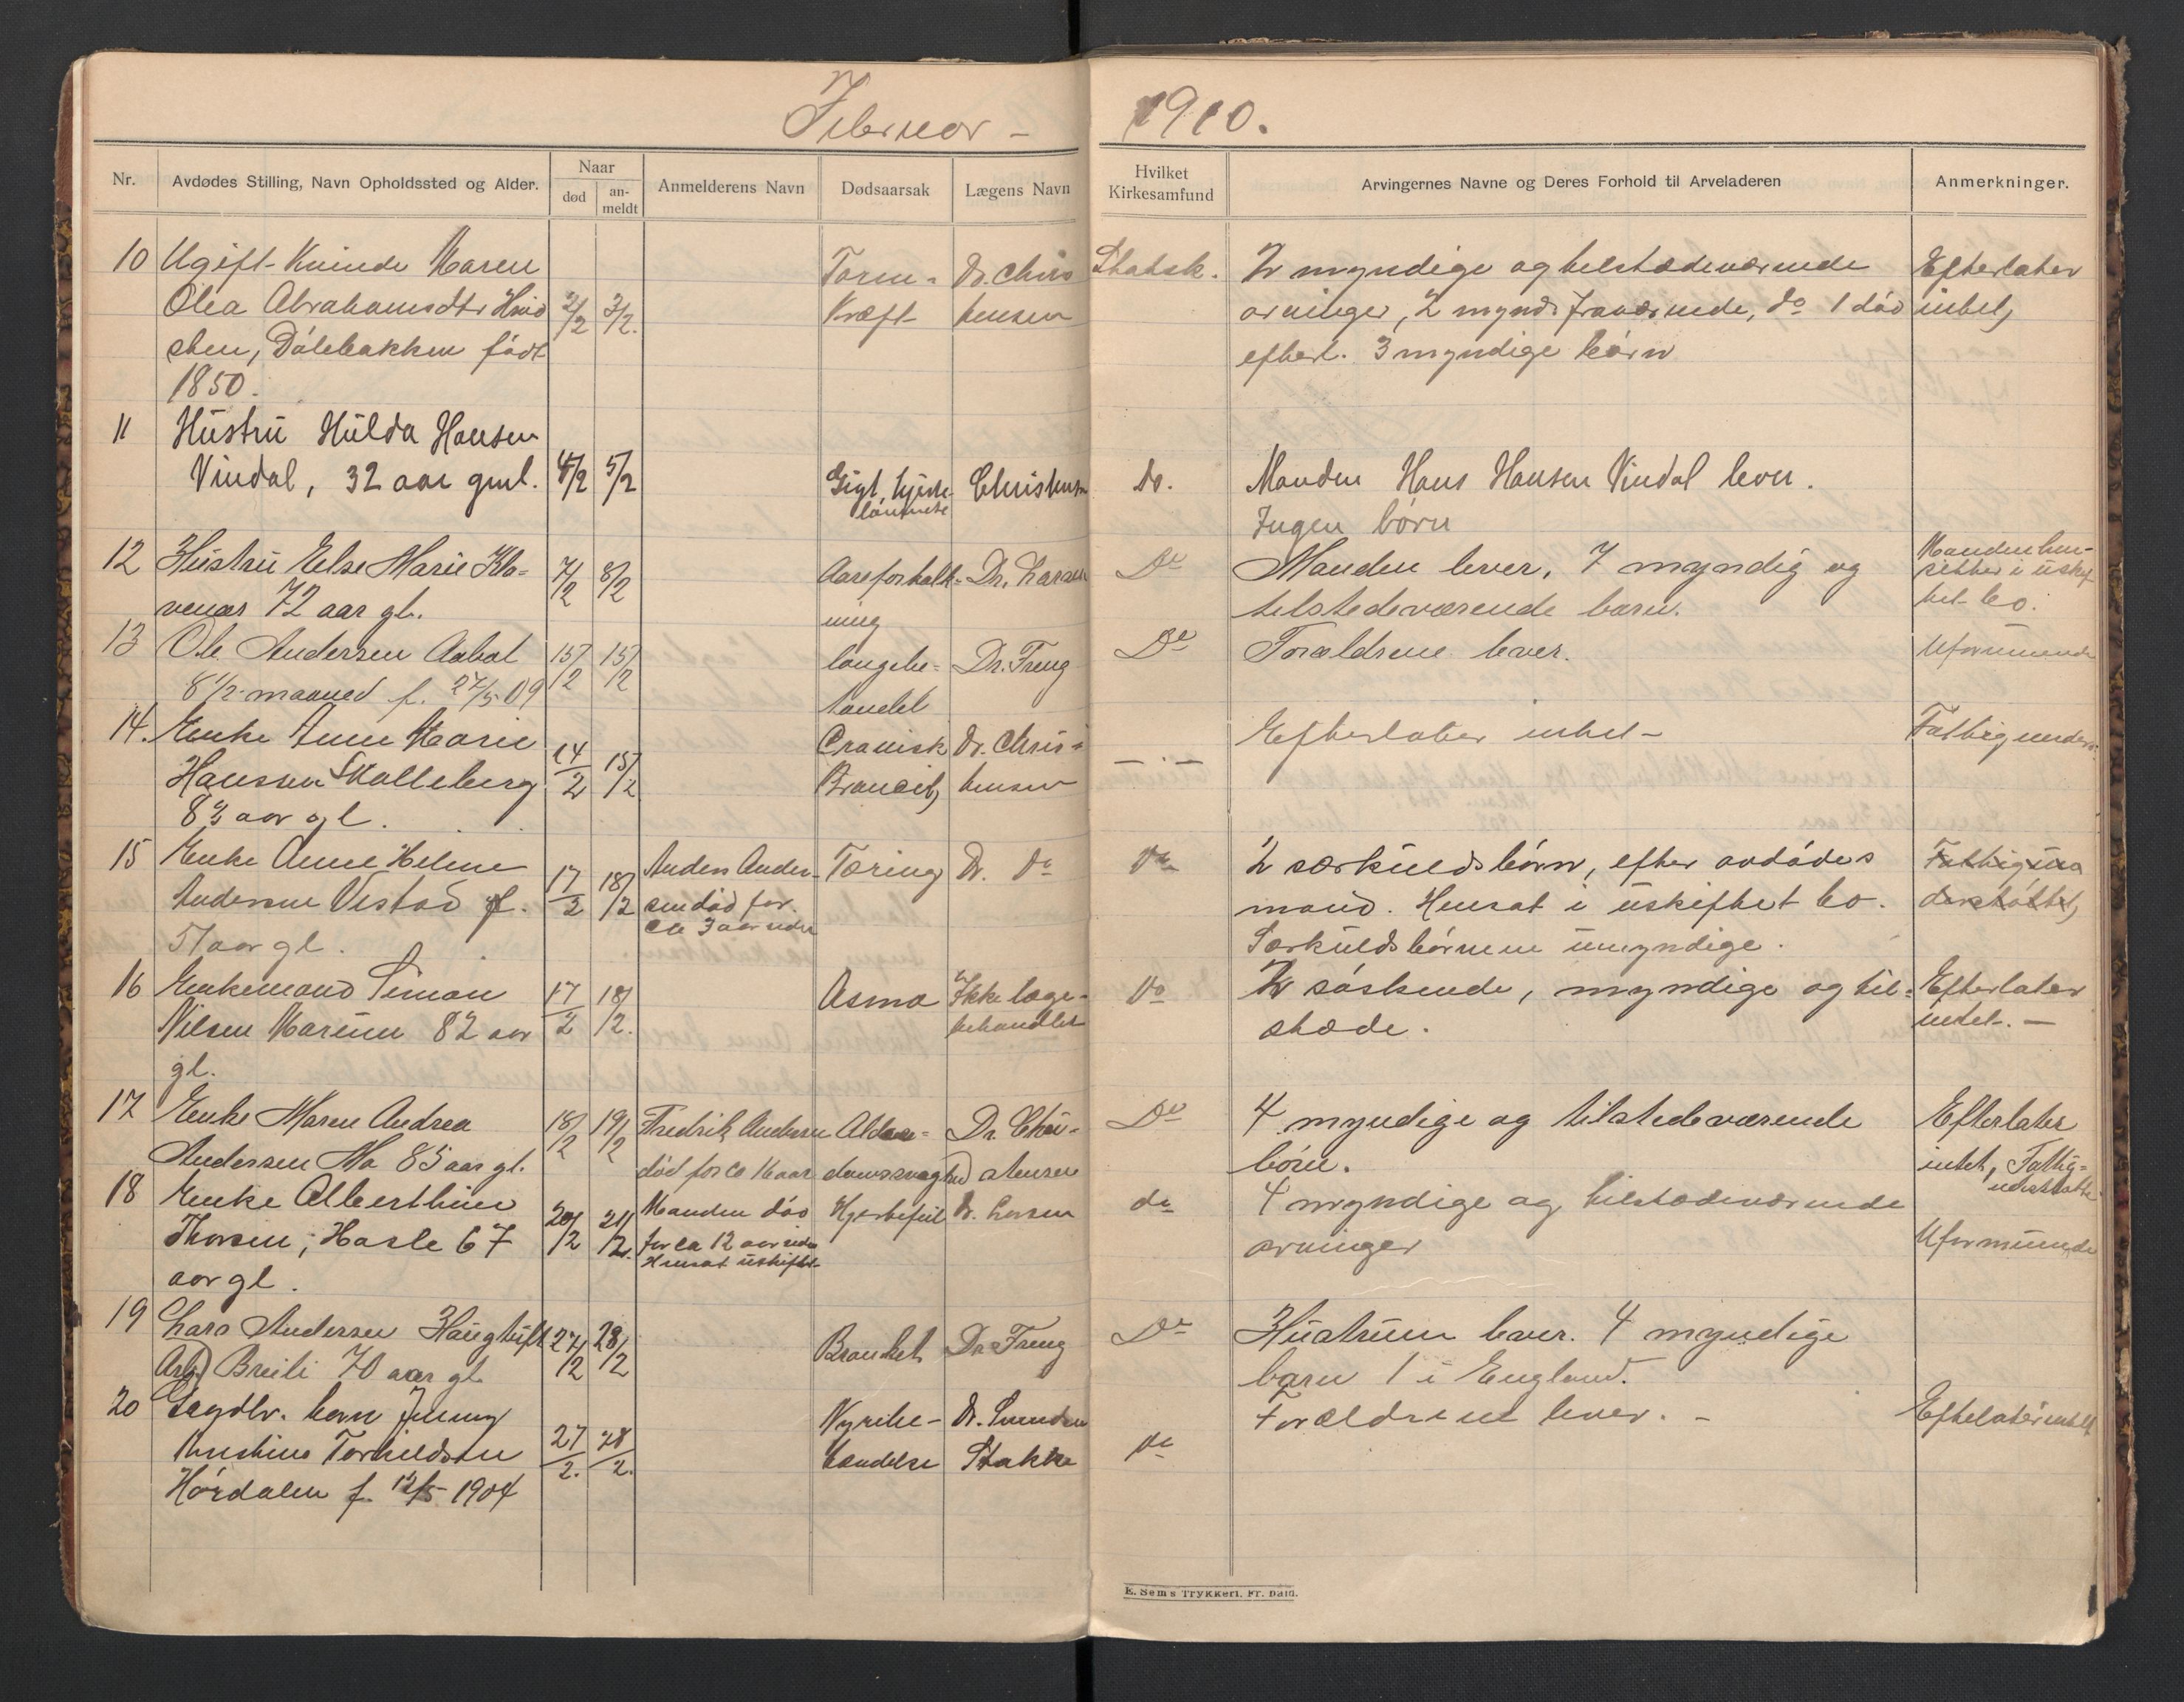 Februar - 1910.
Nr.
Avdødes Stilling, Navn Opholdssted og Alder.
Naar
død
an-
meldt
Anmelderens Navn
Dødsaarsak
Lægens Navn
Hvilket
Kirkesamfund
Arvingernes Navne og Deres Forhold til Arveladeren
Anmerkninger.
10 Ugift Kvinde Maren
Olea Abrahamsdtr
Dølebakken født
1850.
2/2 3/2.
Tarm-
Kræft
Dr. Chris
tensen
Statsk.
2 myndige og tilstædeværende
arvinger, 2 mynd. fraværende, do 1 død
efterl. 3 myndige børn
Efterlater
intet,
11 Hustru Hulda Hansen
Vindal, 32 aar gml.
4/2 5/2
Gigt, hjerte-
Christensen
Do.
Manden Hans Hansen Vindal lever.
Ingen børn
12 Hustru Else Marie Kla-
venæs 72 aar gl.
7/2 8/2
Aareforkalk-
ning
Dr. Larsen
Do
Manden lever, 7 myndig og
tilstedeværende barn.
Manden hen-
sitter i uskif
tet bo.
13 Ole Andersen Aabol
8 1/2 maaned f. 27/5 09
15/2 15/2
Lungebe-
tændel
Dr. Freng
Do
Forældrene lever.
Uformuende
14. Enke Anne Marie
Hanssen Skalleberg
aar gl.
14/2 15/2
Cronisk
Broncit,
Dr. Chris-
tensen
— " —
Efterlater intet -
Fattigunders.
15 Enke Anne Helene
Andersen Vestad
57 aar gl.
17/2 18/2
Anders Ander-
sen død for
ca 3 aar siden
Tæring
Dr. do
do
2 særkuldsbørn, efter avdødes
mand. Hensat i uskiftet bo.
Særkuldsbørnene umyndige.
Fattigun
derstøttet,
16 Enkemand Simon
Nilsen Marum 82 aar
gl.
17/2 18/2.
Asma
Ikke læge-
behandlet
do
2 søskende, myndige og til-
stæde.
Efterlater
intet. —
17 Enke Maren Andrea
Andersen Mo 85 aar gl.
18/2 19/2
Fredrik Andersen
død for ca 16 aar
Alder-
domssvaghed
Dr. Chri-
stensen
Do
4 myndige og tilstedeværende
børn.
Efterlater
intet, Fattig-
understøtte
18 Enke Alberthine
Thorsen, Hasle 67
aar gl.
20/2 21/2.
Manden død
for ca 12 aar siden
Hensat uskiftet
Hjertefeil
Dr. Larsen
do
4 myndige og tilstedeværende
arvinger
Uformuende
19 Lars Andersen Haugtuft
Arb) Breili 70 aar gl.
27/2 28/2
Bronkit
Dr Freng
Do
Hustruen lever. 4 myndige
barn 1 i England.
20 barn Jenny
Kristine Torkildsen
Hørdalen f. 12/5 1904
27/2. 28/2.
Nyrebe-
tændelse
Dr.
Stakke
do
Forældrene lever. -
Efterlater intet
E. Sem's Trykkeri, Fr.hald.